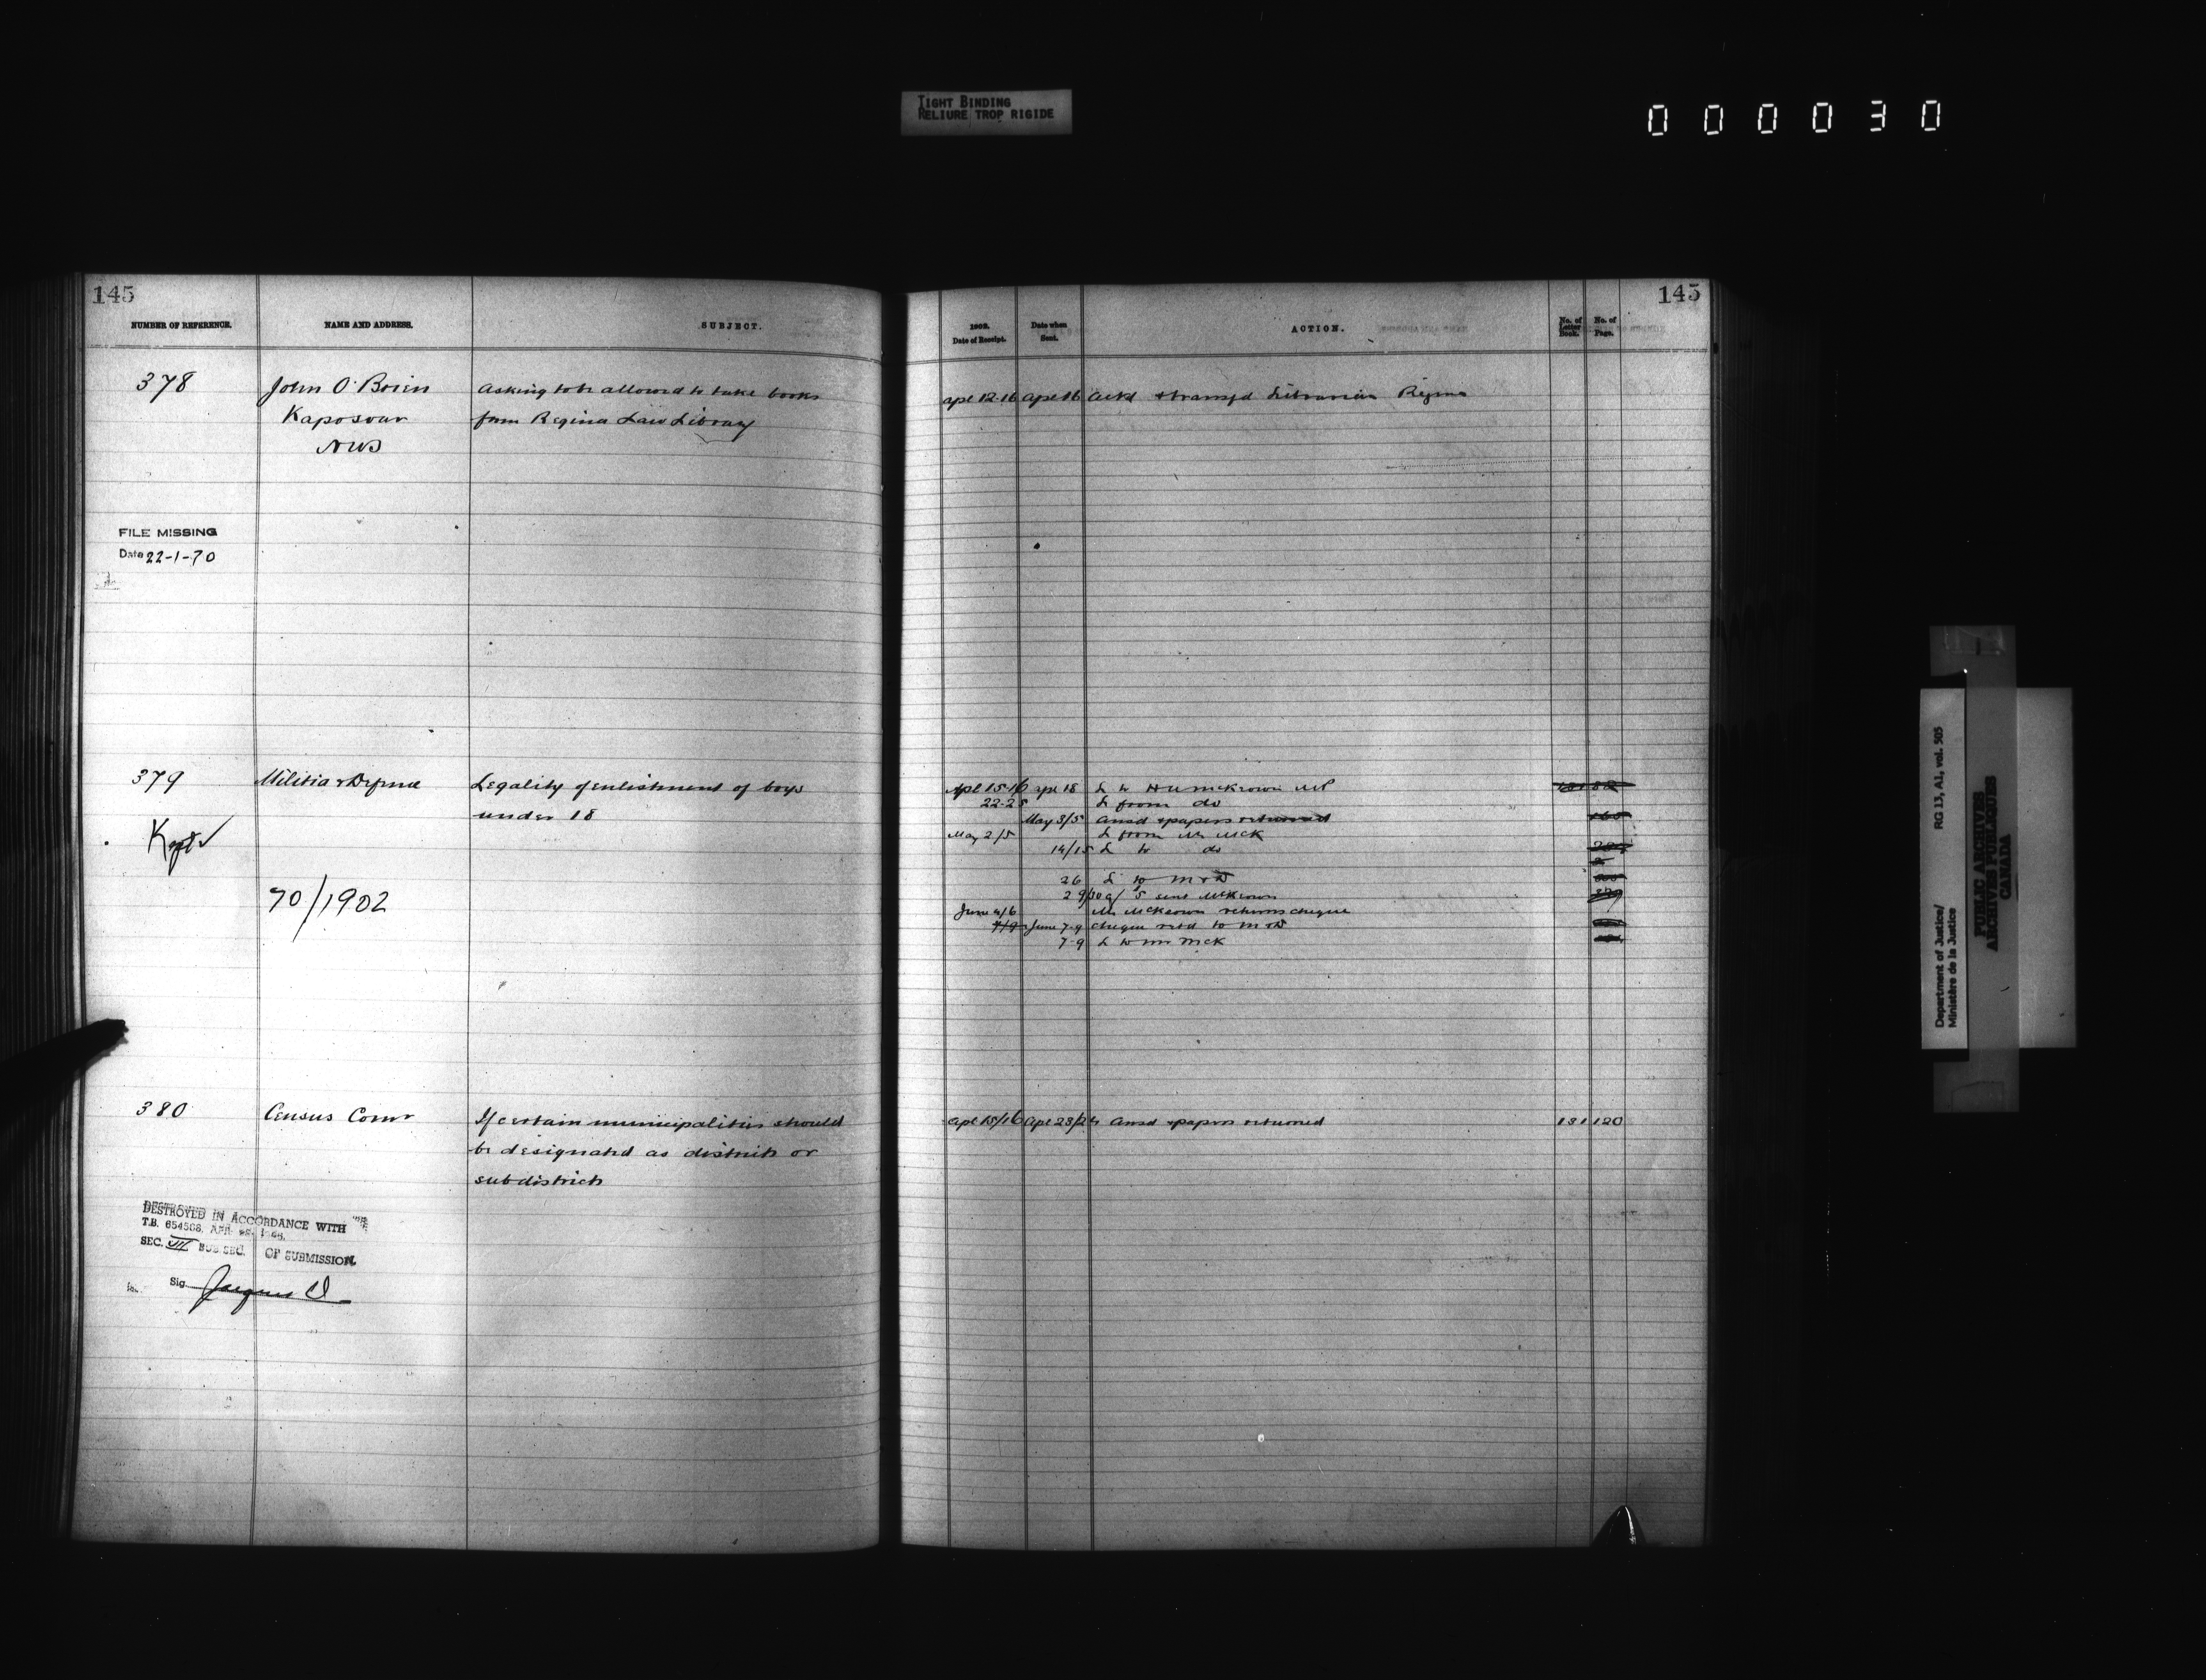 TIGHT BINDING
RELIURE TROP RIGIDE
000030
145
NUMBER OF REFERENCE.
NAME AND ADDRESS.
SUBJECT.
378
John O'Brien
Kaposvar
NWT
Asking to be allowed to take books
from Regina Law Library
FILE MISSING
Date 22-1-70
379
Militia & Defence
Legality of enlistment of boys
under 18
Kept
70/1902
380
Census Comr
If certain municipalities should
be designated as districts or
subdistricts
DESTROYED IN ACCORDANCE WITH
T.B. 654508.
SEC. III SUB SEC. OF SUBMISSION.
Sig.
145
1902.
Date of Receipt.
Date when
Sent.
ACTION.
No. of
Letter
Book.
No. of
Page.
apl 12-16 apl 16 Ackd & transfd Librarian Regina
Apl 15-16 apl 18 L to McKeown MP
22-25 L from do
May 3/5 Ansd & papers returned
May 2/5 L from Mr McK
14/15 L to do
26 L to M & D
29/30 sent McKeown
June 4/6 Mr McKeown returns cheque
7/9 June 7-9 cheque retd to M & D
7-9 L to Mr McK
apl 15/16 apl 23/24 Ansd & papers returned 131 120
Department of Justice/
Ministère de la Justice
RG 13, A1, vol. 505
PUBLIC ARCHIVES
ARCHIVES PUBLIQUES
CANADA